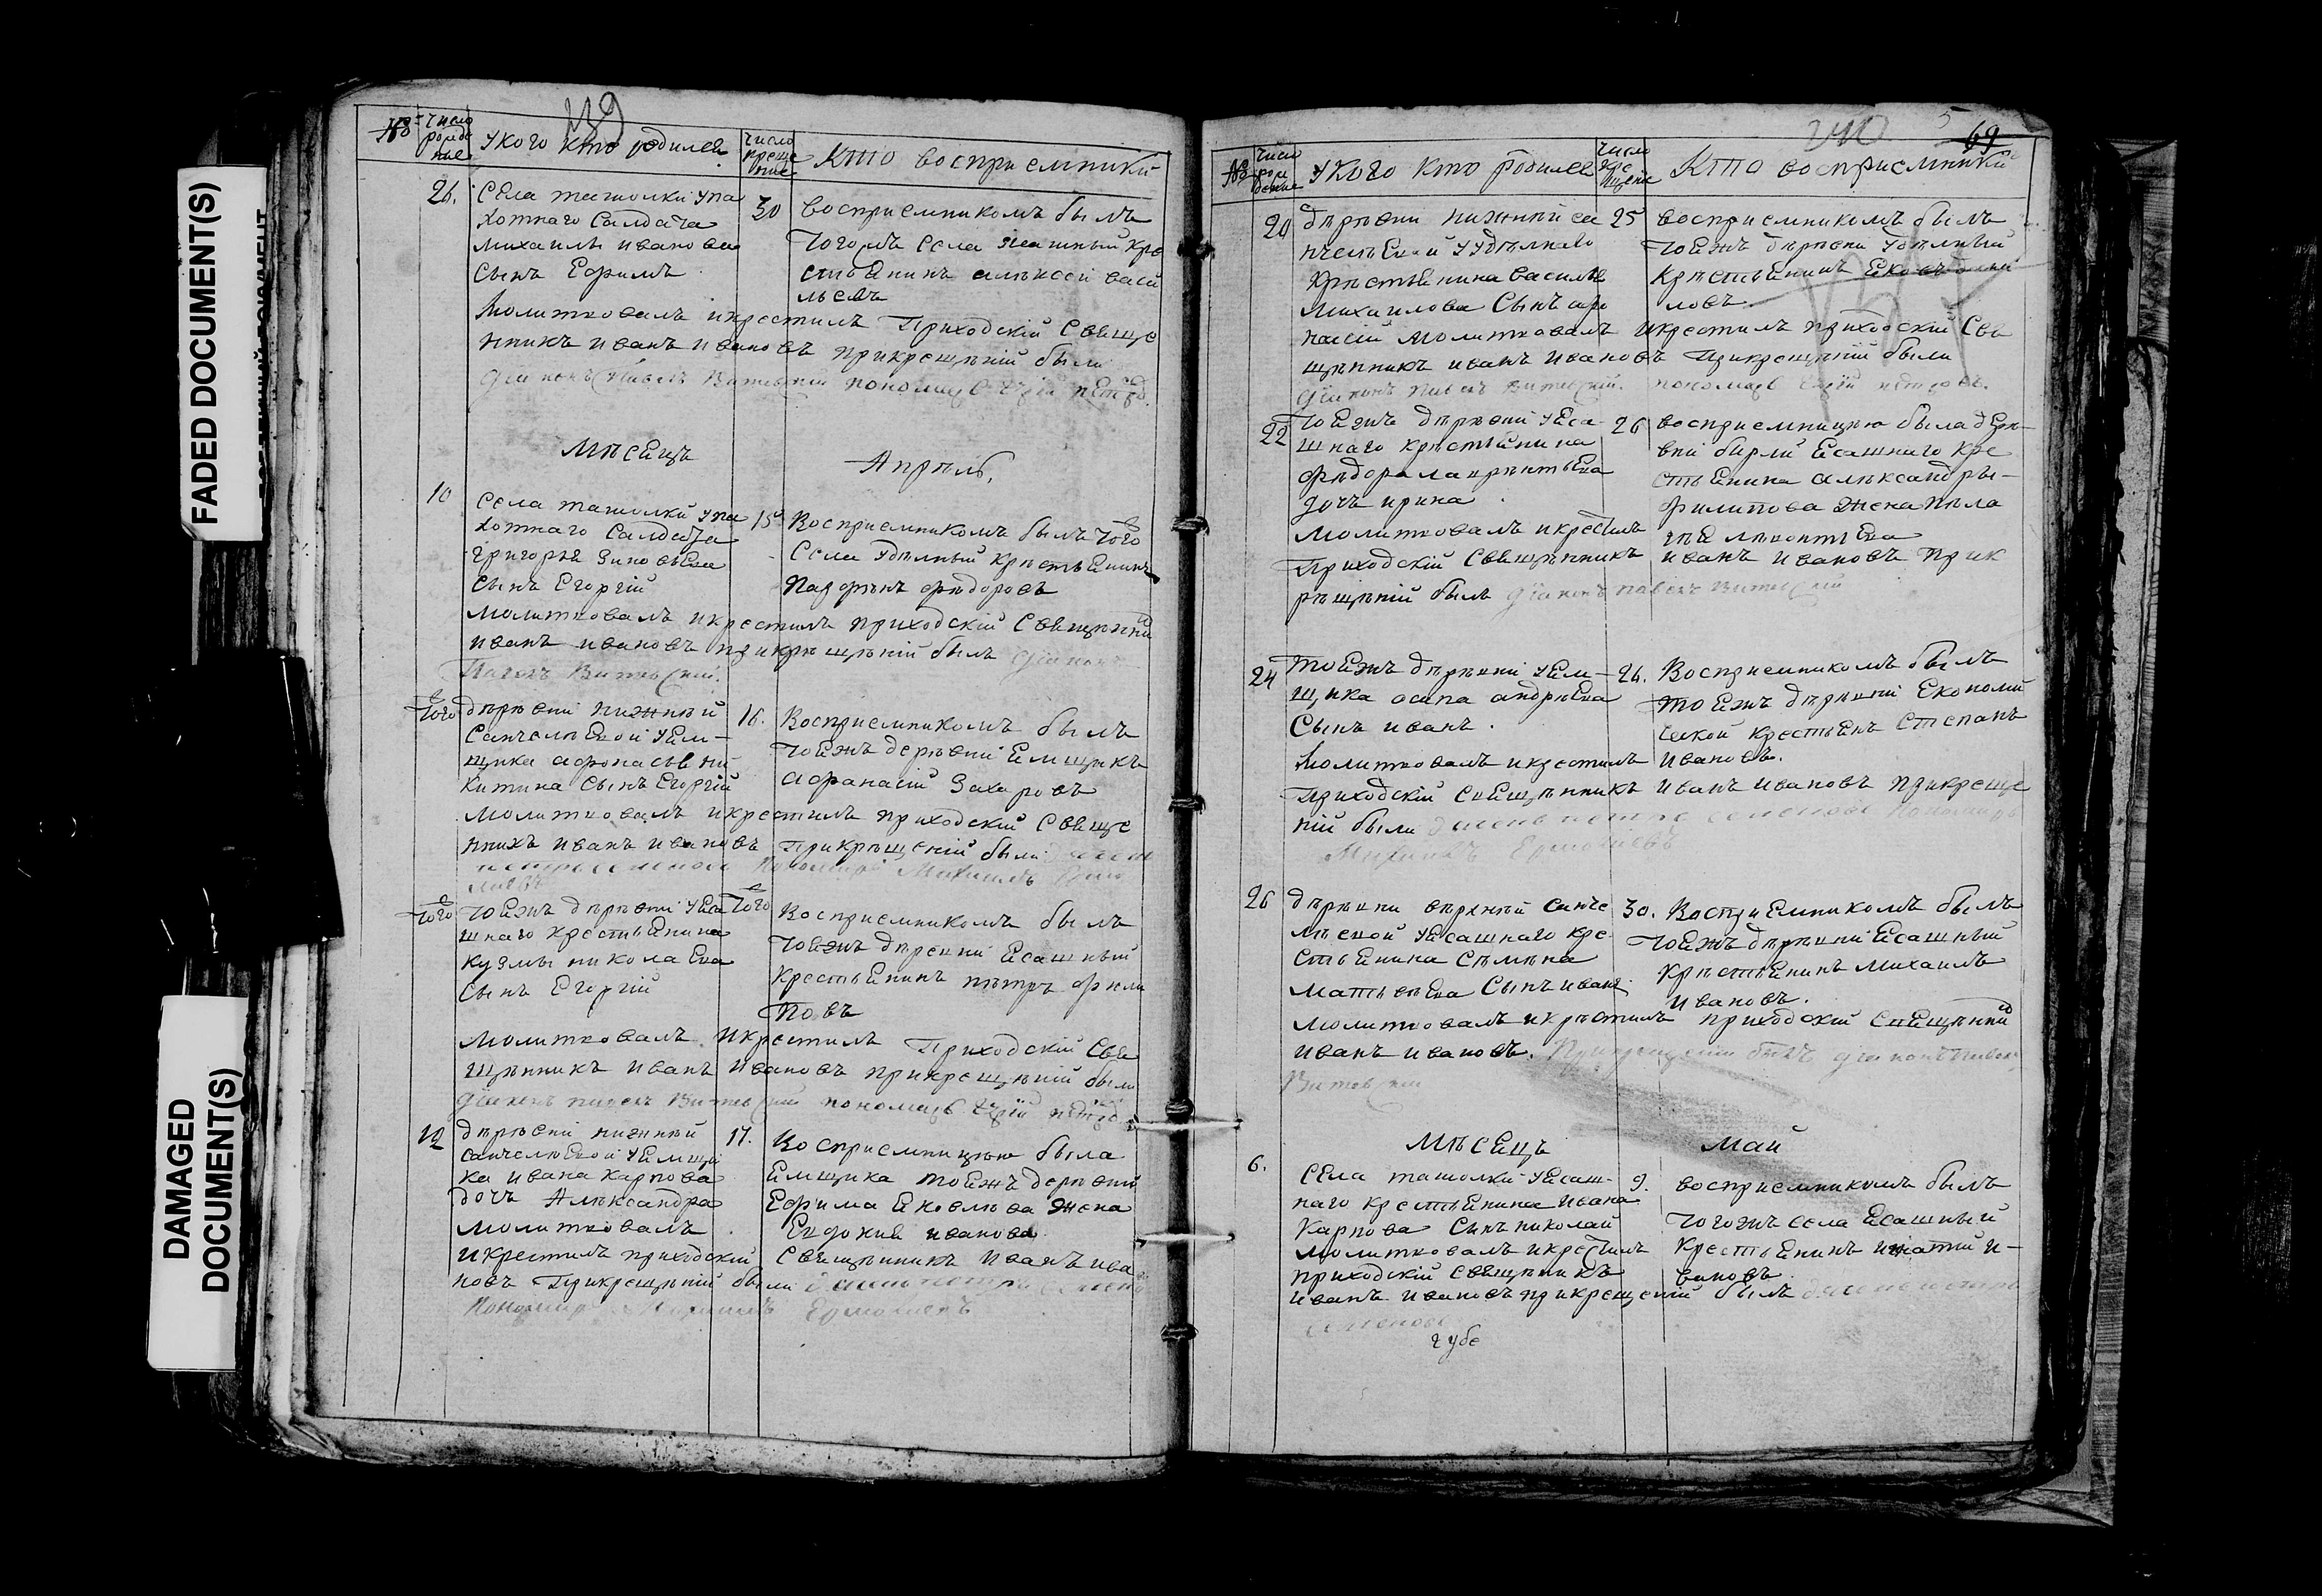 FADED DOCUMENT(S)
DAMAGED
DOCUMENT(S)
239
№ число рожде ние
У кого кто родился
число креще ние
Кто восприемники
26. Села ташолки упа
хотнаго Салдата
михаилы иванова
Сынъ Ефимъ
30 восприемникомъ былъ
тогожъ села ясашный кре
стьЕнинъ алѣксѣй васи
льевъ
Молитвовалъ икрестилъ Приходскій Свяще
нникъ иванъ ивановъ прикрещѣніи были
діаконъ Павелъ Витевскій пономарь
мѣсЕцъ Апрѣль,
10 Села ташолки упа
хотнаго Салдата
григорья ЗиновьЕва
Сынъ Егоргій
15 Восприемникомъ былъ того
Села Удѣлный КрѣстьЕнинъ
Парфѣнъ фѣдоровъ
молитвовалъ икрестилъ приходскій Свещѣнни
иванъ ивановъ прикрѣщѣніи былъ діаконъ
Павелъ Витевскій.
того дѣрѣвни нижнѣй
СанчелѣЕвой уЕм-
щика афонасья ни
китина Сынъ Егоргій
16. Восприемникомъ былъ
тоЕжъ дерѣвни Емщикъ
афанасій Захаровъ
молитвовалъ икрестилъ приходскій Свяще
нникъ иванъ ивановъ Прикрѣщеніи были
Пономарь Михаилъ
того тоЕжъ дѣрѣвни уЕса
шнаго крестьЕнина
кузмы николаЕва
Сынъ Егоргій
того Восприемникомъ былъ
тоЕжъ дѣревни Есашный
КрестьЕнинъ пѣтръ фили
повъ
молитвовалъ икрестилъ Приходскій Свя
щѣнникъ иванъ ивановъ прикрещѣніи были
діаконъ павелъ Витевскій пономарь
12 дѣрѣвни нижнѣй
санчелѣЕвой уЕмщи
ка ивана карпова
дочъ Алѣксандра
17. Восприемницею была
Емщика тоЕжъ дерѣвни
Ефима Ековлева жена
Евдокия иванова
молитвовалъ
икрестилъ приходскій Свещѣнникъ иванъ ива
новъ Прикрещѣніи были
Пономарь Михаилъ Ермолаевъ
240 5 69
№ число рож дение
У кого кто родился
число кре щение
Кто восприемники
20 дѣрѣвни нижнѣй са
нчелѣЕвой уудѣлнаво
крѣстьЕнина василья
михаилова Сынъ афо
насій
25 восприемникомъ былъ
тоЕжъ дѣрѣвни Удѣлный
КрѣстьЕнинъ
ловъ.
молитвовалъ икрестилъ приходскій Све
щѣнникъ иванъ ивановъ Прикрещѣніи были
діаконъ Павелъ Витевскій. пономарь
22 тоЕжъ дѣрѣвни уЕса
шнаго крѣстьЕнина
фѣдора лаврѣнтьЕва
дочъ ирина.
26 восприемницею была дѣрѣ-
вни Есашнаго кре
стьЕнина алѣксандры-
филипова жена пѣла
гѣЕ лѣонтьЕва
молитвовалъ икрестилъ
Приходскій Свещѣнникъ иванъ ивановъ прик
рѣщѣніи былъ діаконъ павелъ Витевскій
24 тоЕжъ дѣрѣвни уЕм-
щика осипа андрѣЕва
Сынъ иванъ.
26. Восприемникомъ былъ
тоЕжъ дѣрѣвни Економи
ческой крестьЕнъ Степанъ
ивановъ.
молитвовалъ икрестилъ
Приходскій Свещѣнникъ иванъ ивановъ прикреще
ніи были семеновъ пономарь
Михаилъ Ермолаевъ
26 дѣрѣвни верхнѣй санче
лѣевой уЕсашнаго кре
стьЕнина Сѣмѣна
матьвѣЕва Сынъ иванъ
30. ВосприЕмникомъ былъ
тоЕжъ дѣрѣвни Есашный
КрѣстьЕнинъ михаилъ
ивановъ.
молитвовалъ икрѣстилъ приходскій Свещѣнни
иванъ ивановъ. Прикрещеніи былъ діаконъ Павелъ
Витевскій
мѣсЕцъ май
6. СЕла ташолки уЕсаш-
наго крестьЕнина ивана
Карпова Сынъ николай
9. восприемникомъ былъ
тогожъ села Есашный
КрестьЕнинъ игнатий и-
вановъ.
молитвовалъ икрестилъ
приходскій Свещѣнникъ
иванъ ивановъ прикрещеніи былъ
семеновъ
губе